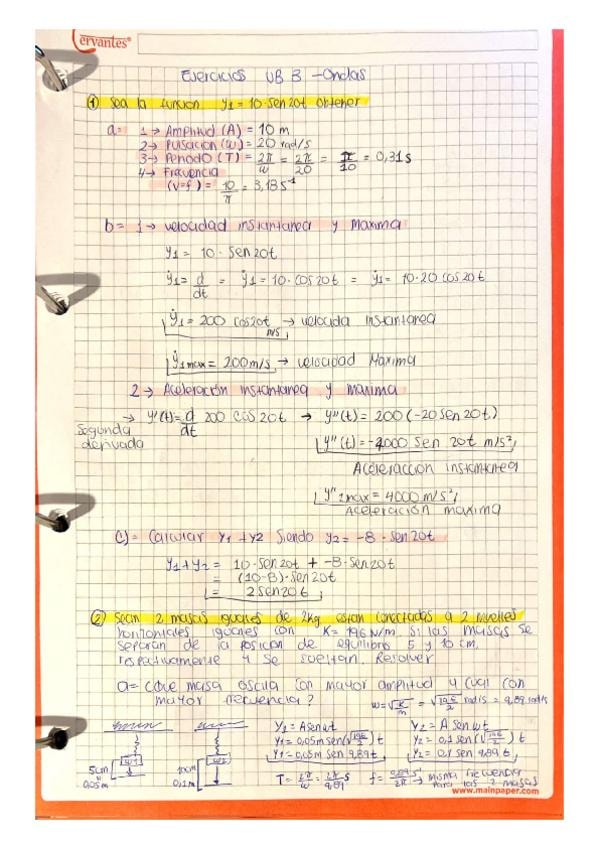 ervantes®
Ejercicios UB 3 - Ondas
① Sea la funcion y1 = 10 · sen 20t obtener
a= 1 → Amplitud (A) = 10 m
2 → Pulsacion (w) = 20 rad/s
3 → Periodo (T) = 2π/w = 2π/20 = π/10 = 0,31s
4 → Frecuencia
(v=f) = 10/π = 3,18 s⁻¹
b= 1 → velocidad instantanea y Maxima
y1 = 10 · Sen 20t
ẏ1 = d/dt = ẏ1 = 10 · cos 20t = ẏ1 = 10·20 cos 20t
ẏ1 = 200 cos 20t m/s → velocida instantanea
ẏ1max = 200 m/s → velocidad Maxima
2 → Aceleración instantanea y maxima
→ y'(t) = d/dt 200 cos 20t → y''(t) = 200 (-20 sen 20t)
Segunda
derivada
y''(t) = -4000 Sen 20t m/s²
Aceleraccion instantanea
y''1max = 4000 m/s²
Aceleracion maxima
C) = Calcular y1 + y2 Siendo y2 = -8 · sen 20t
y1 + y2 = 10 · sen 20t + -8 · sen 20t
= (10-8) · sen 20t
= 2 sen 20t
② Sean 2 masas iguales de 2kg estan conectadas a 2 muelles
horizontales iguales con K = 196 N/m. Si las masas se
separan de la posicion de equilibro 5 y 10 cm,
respectivamente y se sueltan. Resolver
a = ¿Que masa oscila con mayor amplitud y cual con
mayor frecuencia?
w = √K/m = √196/2 rad/s = 9,89 rad/s
y1 = A sen wt
y1 = 0,05m sen (√196/2) t
y1 = 0,05m sen 9,89t
y2 = A sen wt
y2 = 0,1 sen (√196/2) t
y2 = 0,1 sen 9,89 t
5cm
0,05m
10cm
0,1m
T = 2π/w = 2π/9,89 s
f = 9,89/2π s⁻¹ → misma frecuencia
para las 2 masas
www.mainpaper.com